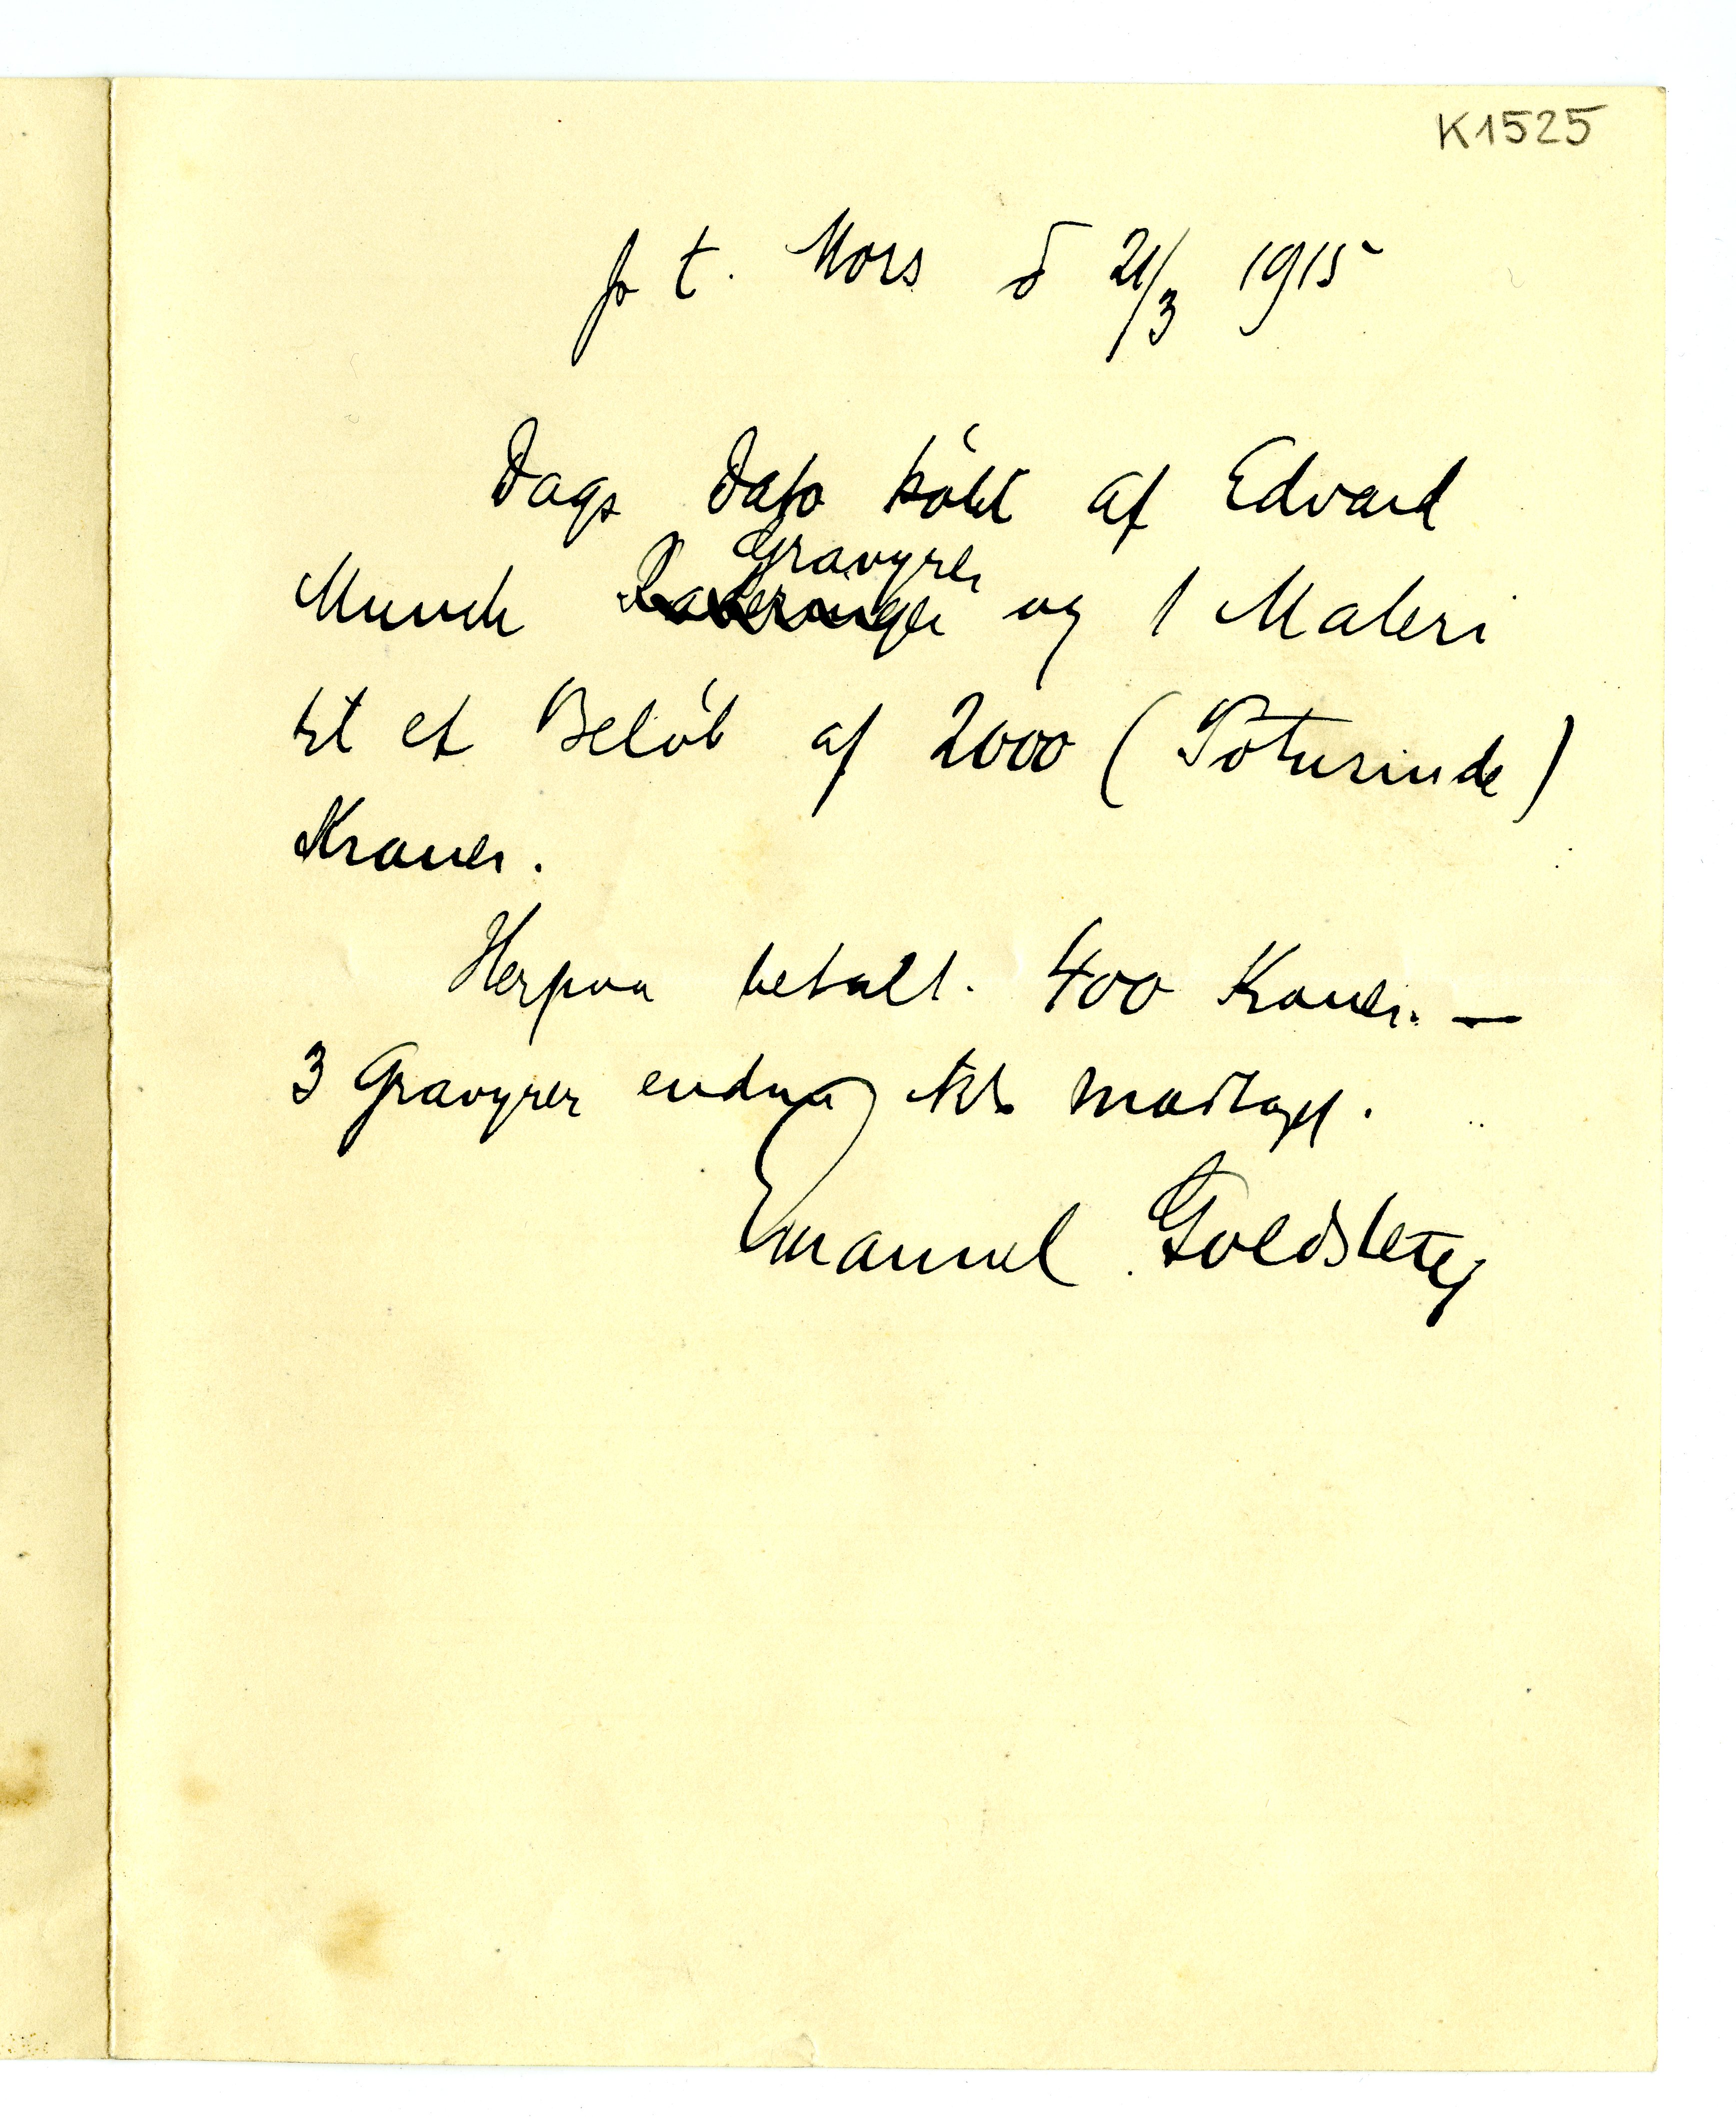 K1525
p t. Mors d 21/3 1915
Dags Dato købt af Edvard
Gravyrer
Munch Raderinger og 1 Maleri
til et Beløb af 2000 (Totusinde)
Kroner.
Herpaa betalt. 400 Kroner. —
3 Gravyrer endnu ikke modtaget.
Emanuel Goldstein